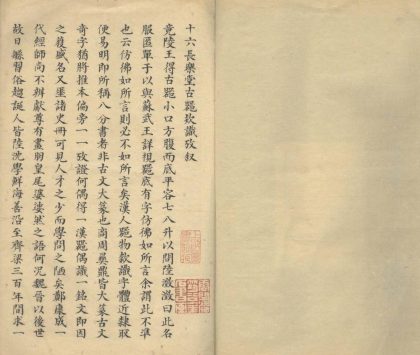 十六長樂堂古器款識攷叙
竟陵王得古器小口方腹而底平容七八升以問陸澄澄曰此名
服匿單于以與蘇武王詳視器底有字仿佛如所言余謂此不準
也云仿佛如所言則必不如所言矣漢人器物款識字體近隸取
便易明即所稱八分書者非古文大篆也商周彝鼎皆大篆古文
奇字猶將推本偏旁一一致證何偶得一漢器偶識一銘文即因
之獲盛名又垂諸史冊可見人才之少而學問之陋矣鄭康成一
代經師尚不辨獻尊有畫羽皇尾婆娑然之語何況魏晉以後世
故日縣習俗趨誕人皆陸沈學鮮海善沿至齊梁三百年間求一